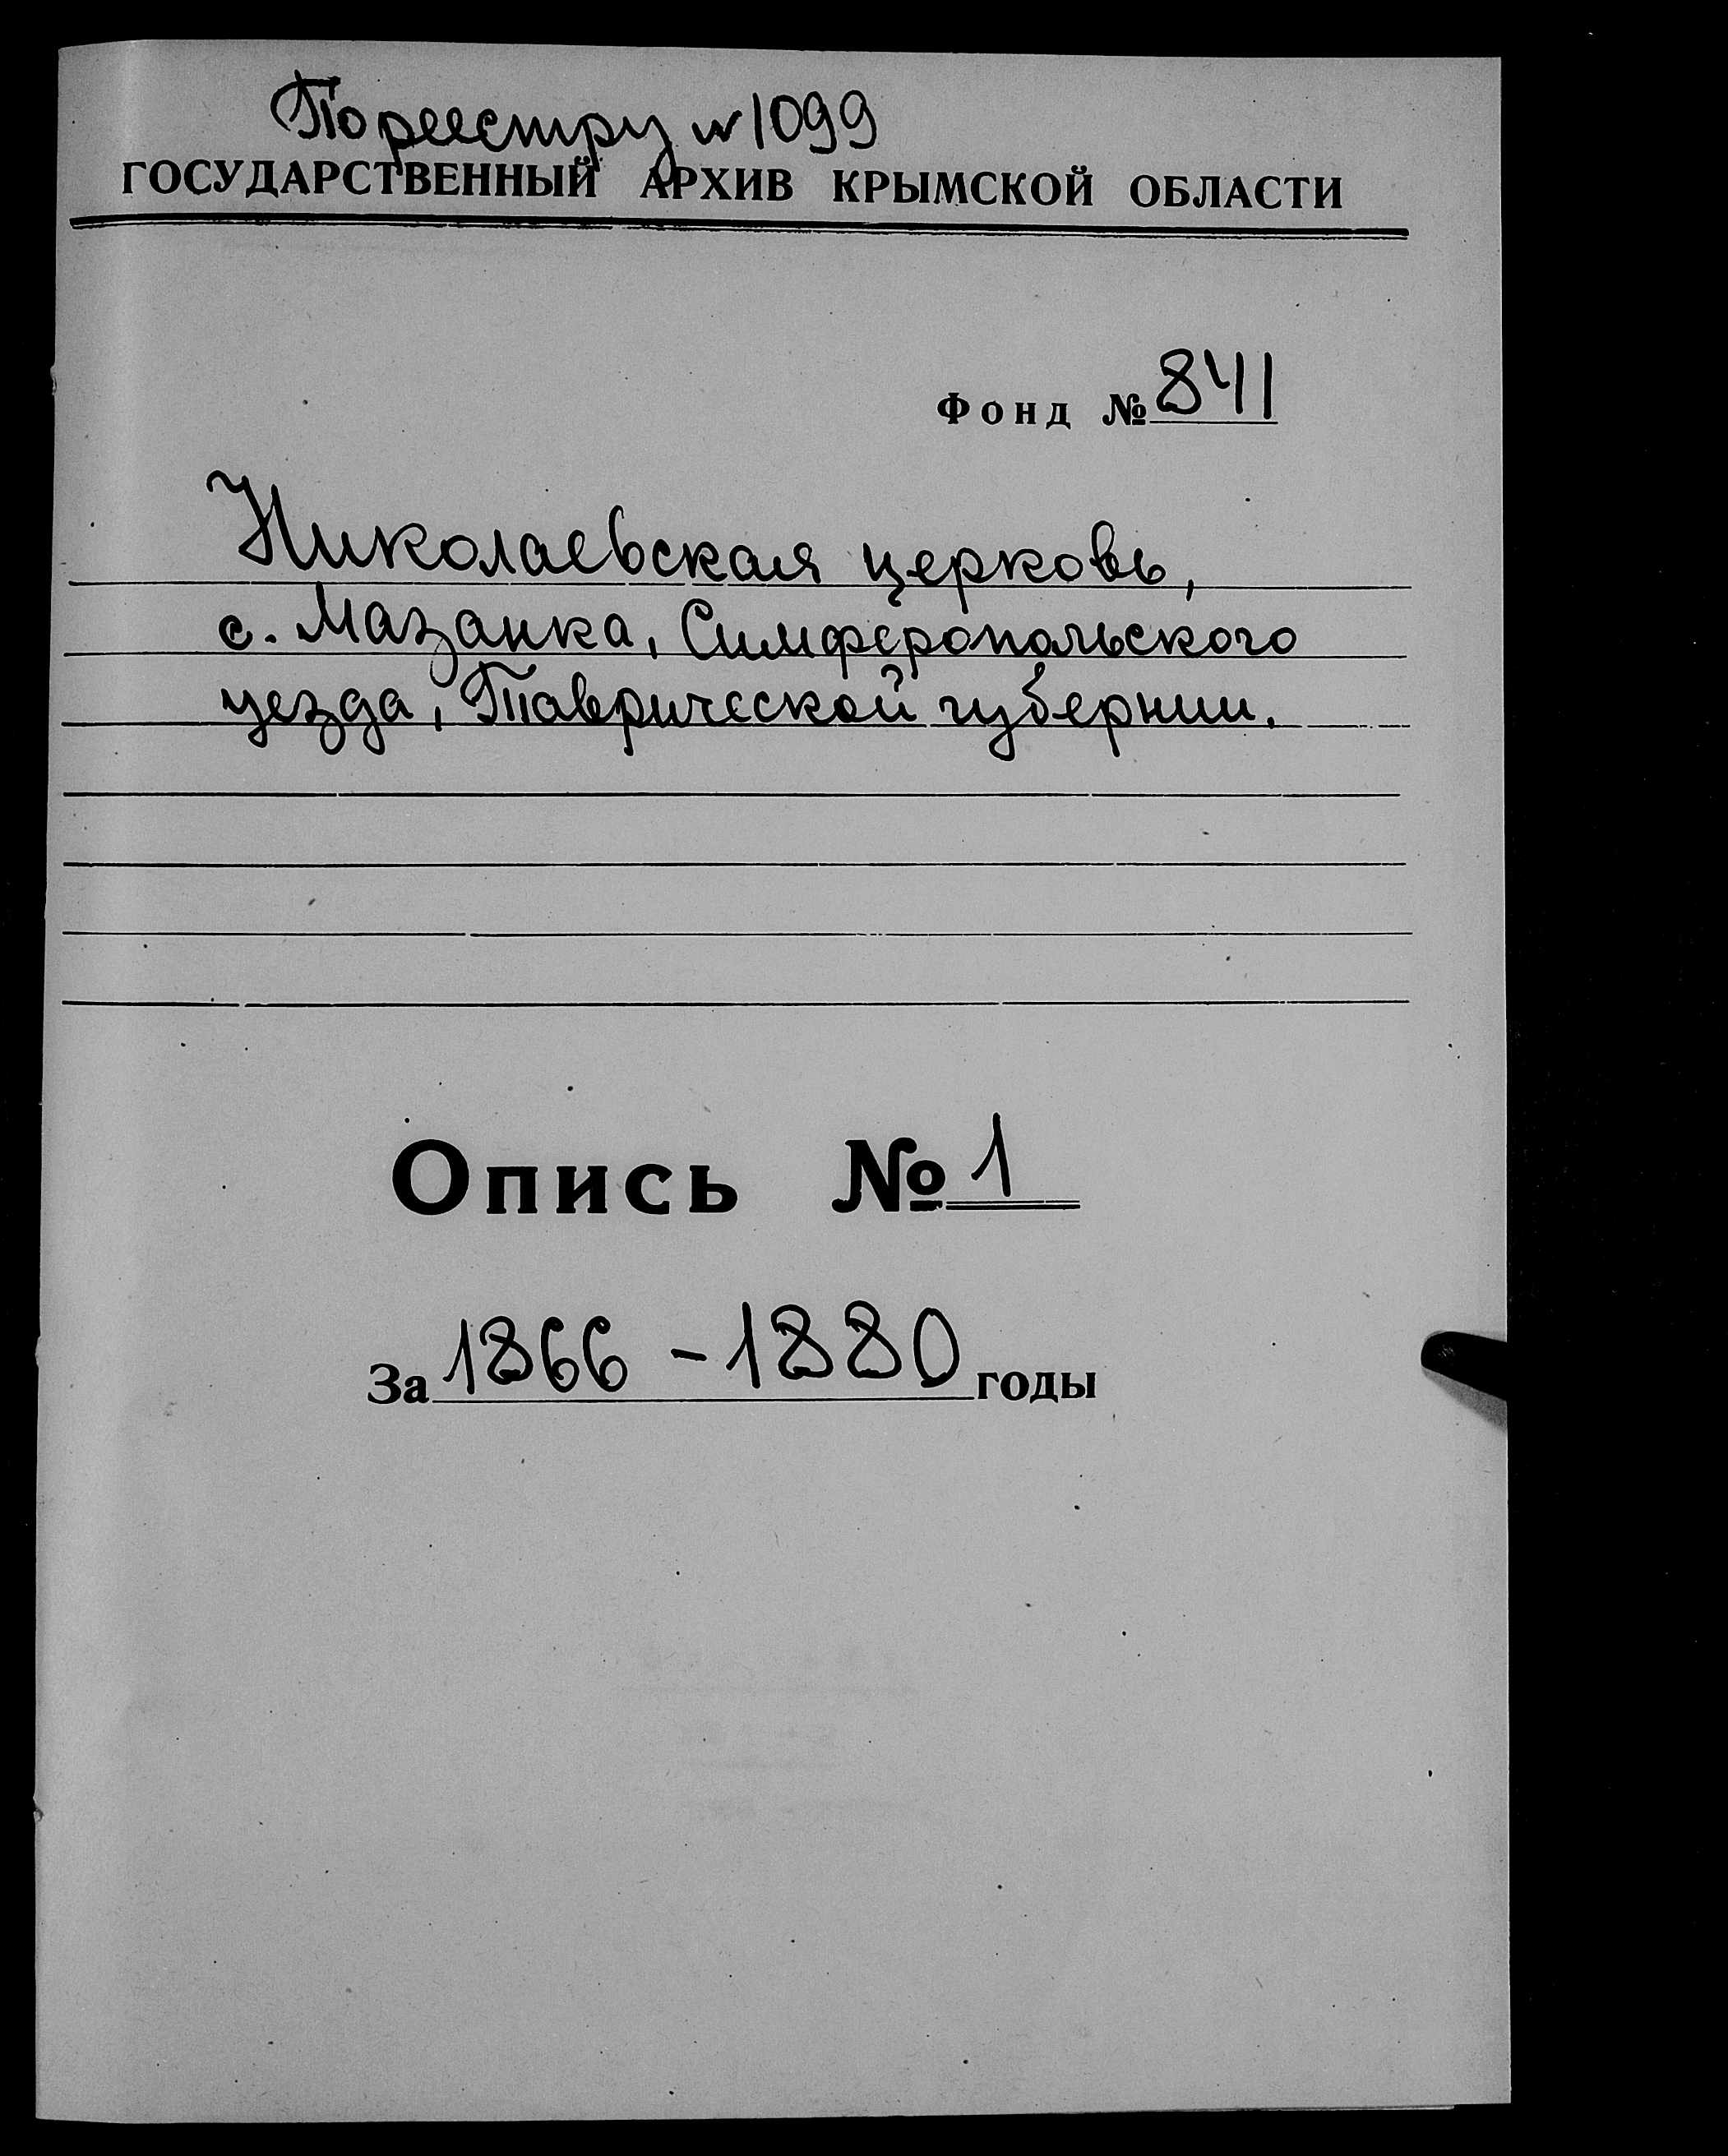 По реестру № 1099
ГОСУДАРСТВЕННЫЙ АРХИВ КРЫМСКОЙ ОБЛАСТИ
Фонд № 841
Николаевская церковь,
с. Мазанка, Симферопольского
уезда, Таврической губернии.
Опись № 1
За 1866 - 1880 годы